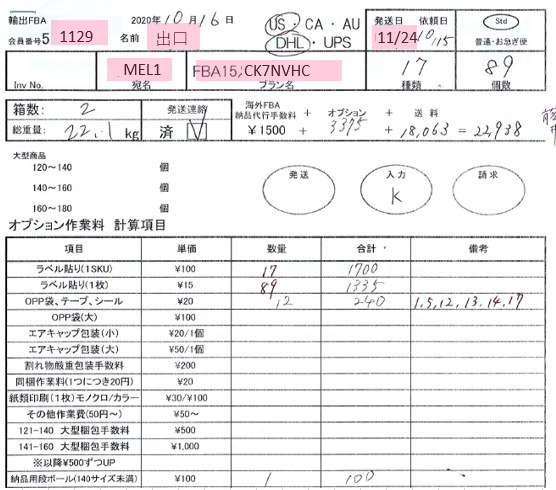 輸出FBA 2020年10月16日 US・CA・AU 発送日 依頼日 Std
会員番号5 1129 名前 出口 DHL・UPS 11/24 10/15 普通・お急ぎ便
MEL1 FBA15 CK7NVHC 17 89
Inv No. 宛名 プラン名 種類 個数
箱数: 2 発送連絡 海外FBA納品代行手数料 + オプション + 送料
総重量: 22.1 kg 済 ¥1500 + 3375 + 18,063 = 22,938
大型商品
120~140 個 発送 入力 請求
140~160 個 K
160~180 個
オプション作業料 計算項目
項目 単価 数量 合計 備考
ラベル貼り(1SKU) ¥100 17 1700
ラベル貼り(1枚) ¥15 89 1335
OPP袋、テープ、シール ¥20 12 240 1.5,12,13.14.17
OPP袋(大) ¥100
エアキャップ包装(小) ¥20/1個
エアキャップ包装(大) ¥50/1個
割れ物厳重包装手数料 ¥200
同梱作業料(1つにつき20円) ¥20
紙類印刷(1枚)モノクロ/カラー ¥30/¥100
その他作業費(50円~) ¥50~
121-140 大型梱包手数料 ¥500
141-160 大型梱包手数料 ¥1,000
※以降¥500ずつUP
納品用段ボール(140サイズ未満) ¥100 1 100